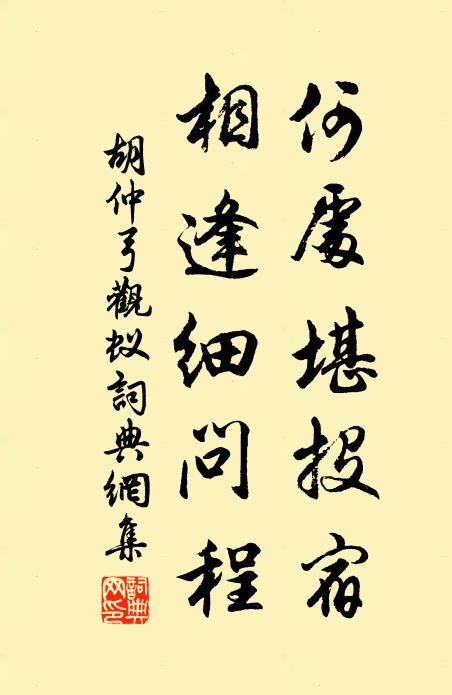 何處堪投宿
相逢細問程
胡仲弓觀蚁詞典網集
詞典网印